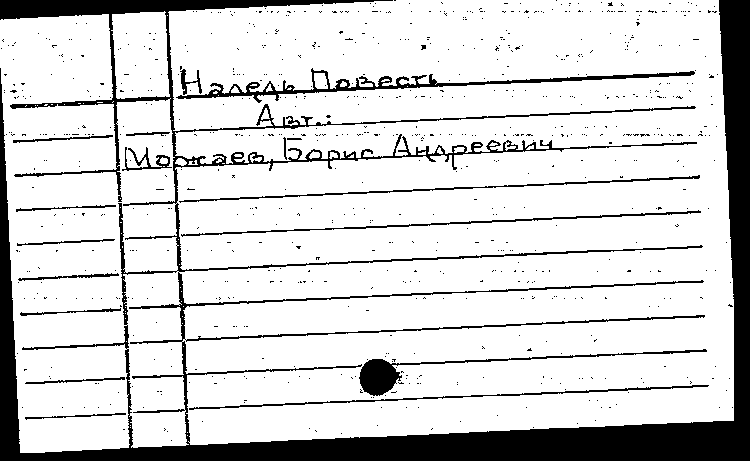 Наледь Повесть
Авт.:
Можаев, Борис Андреевич